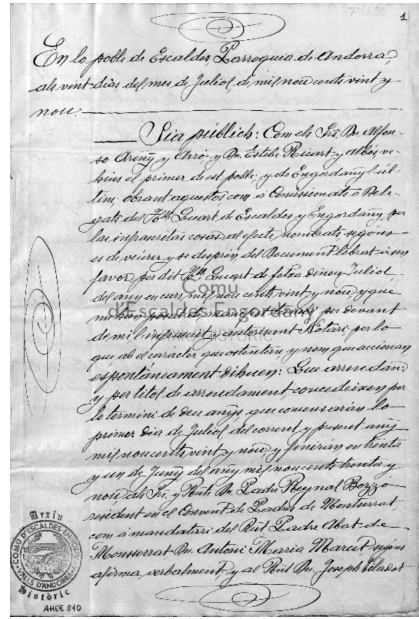 1
En lo poble de Escaldes Parroquia de Andorra,
als vint dias del mes de Juliol de mil nou cents vint y
nou.
Sia públich: Com els Srs. Dn. Alfon-
so Areny y Dn. Esteve Ricart y Albós, ve-
hins el primer de est poble, y de Engordany l'úl-
tim, obrant aquestos com á Comissionats ó Dele-
gats del Quart de Escaldes y Engordany per
las infrascritas cosas al efecte nombrats segons
es de veurer, y se desprèn del Document librat á son
favor per dit Quart de fetxa Juliol
del any en curs mil nou cents vint y nou, y que
per devant
de mi l'infrascrit y autorisant Notari, per lo
que ab el caracter que ostentan y nom que accionan
espontáneament diheen: Que arrendan,
y per titol de arrendament concedeixen per
lo termini de deu anys que comensarán lo
primer dia de Juliol del corrent y present any
mil nou cents vint y nou y finirán en trenta
y un de Juny del any mil nou cents trenta y
nou, als Sr. y Rnt. Dn. Padre Reynal Bozzo
resident en el Convent de Padres de Montserrat
com á mandatari del Rnt. Padre Abat de
Montserrat Dn. Antoni Maria Marcet segons
afirma verbalment, y al Rnt. Dn. Joseph
Comú
d'Escaldes-Engordany
Arxiu
COMÚ D'ESCALDES ENGORDANY
VALLS D'ANDORRA
Històric
AHCE 810